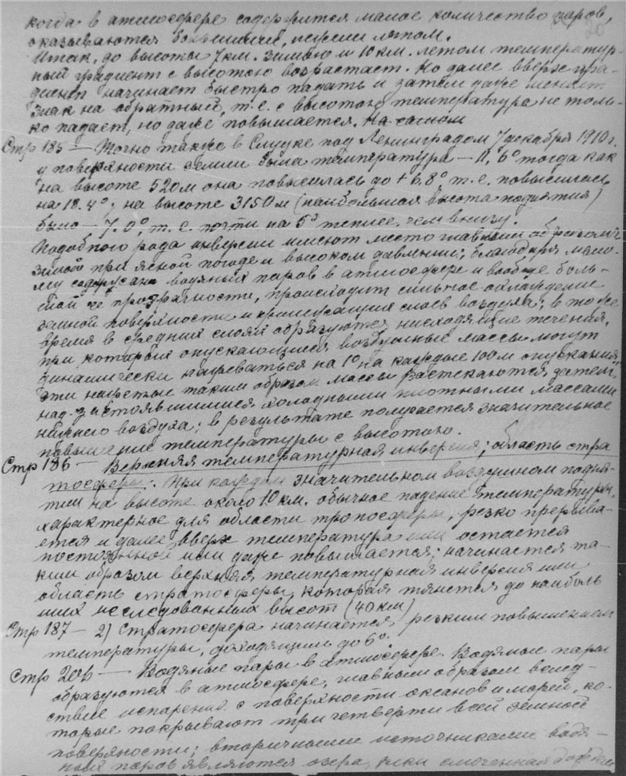 когда в атмосфере содержится малое количество паров,
оказываются большими, нежели летом.
Итак, до высоты 7 км. зимою и 10 км. летом температур-
ный градиент с высотою возрастает. Но далее вверх гра-
диент начинает быстро падать и затем даже меняет
знак на обратный, т.е. с высотою температура не толь-
ко падает, но даже повышается. На самом
Стр 185 — Точно также в Слуцке под Ленинградом 7 декабря 1910 г.
у поверхности земли была температура — 11.6° тогда как
на высоте 520 м она повысилась до +6,8° т.е. повысилась
на 18.4°; на высоте 3150 м (наибольшая высота поднятия)
было — 7.0°, т.е. почти на 5° теплее, чем внизу.
Подобного рода инверсии имеют место главным образом
зимой при ясной погоде и высоком давлении; благодаря мало-
му содержан. водяных паров в атмосфере и вообще боль-
шой её прозрачности, происходит сильное охлаждение
земной поверхности и прилегающих слоев воздуха; в то же
время в средних слоях образуются нисходящие течения,
при которых опускающиеся воздушные массы могут
динамически нагреваться на 1° на каждые 100 м опускания,
эти нагретые таким образом массы растекаются затем
над застоявшимися холодными плотными массами
нижнего воздуха; в результате получается значительное
повышение температуры с высотою.
Стр 186 — Верхняя температурная инверсия; область стра-
тосферы. При каждом значительном воздушном подня-
тии на высоте около 10 км. обычное падение температуры,
характерное для области тропосферы, резко прерыва-
ется и далее вверх температура или остается
постоянной или даже повышается; начинается та-
ким образом верхняя температурная инверсия или
область стратосферы, которая тянется до наиболь
ших исследованных высот (40 км)
Стр 187 — 2) Стратосфера начинается резким повышением
температуры, доходящим до 6°.
Стр 206 — Водяные пары в атмосфере. Водяные пары
образуются в атмосфере, главным образом вслед-
ствие испарения с поверхности океанов и морей, ко-
торые покрывают три четверти всей земной
поверхности; вторичными источниками водя-
ных паров являются озера, реки смоченная